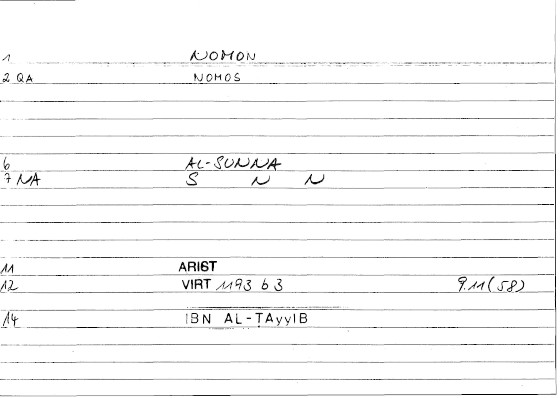 1 NOMON
2 QA NOMOS
6 AL-SUNNA
7 NA S N N
11 ARIST
12 VIRT 1193 b 3 9.11(58)
14 IBN AL-ṬAyyIB